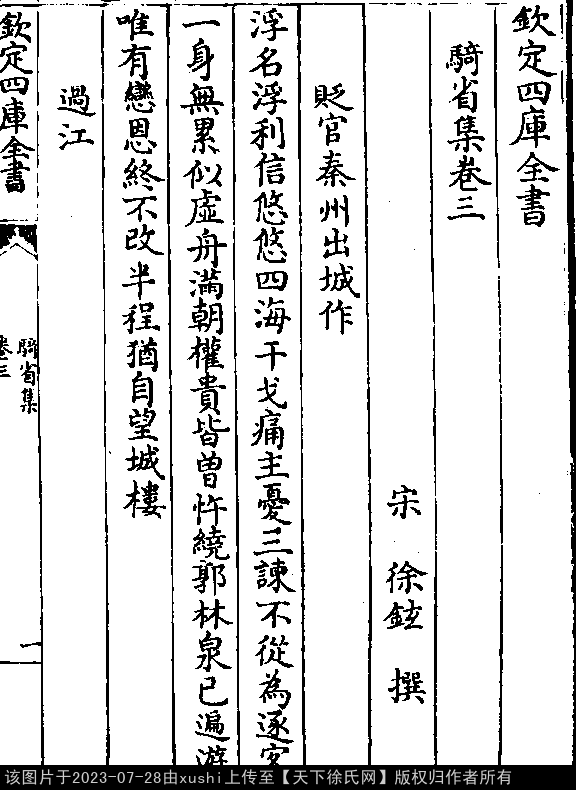 欽定四庫全書
騎省集卷三
宋 徐鉉 撰
貶官泰州出城作
浮名浮利信悠悠四海干戈痛主憂三諫不從為逐客
一身無累似虚舟滿朝權貴皆曾忤繞郭林泉已遍游
唯有戀恩終不改半程猶自望城樓
過江
欽定四庫全書
騎省集
卷三
一
该图片于2023-07-28由xushi上传至【天下徐氏网】版权归作者所有